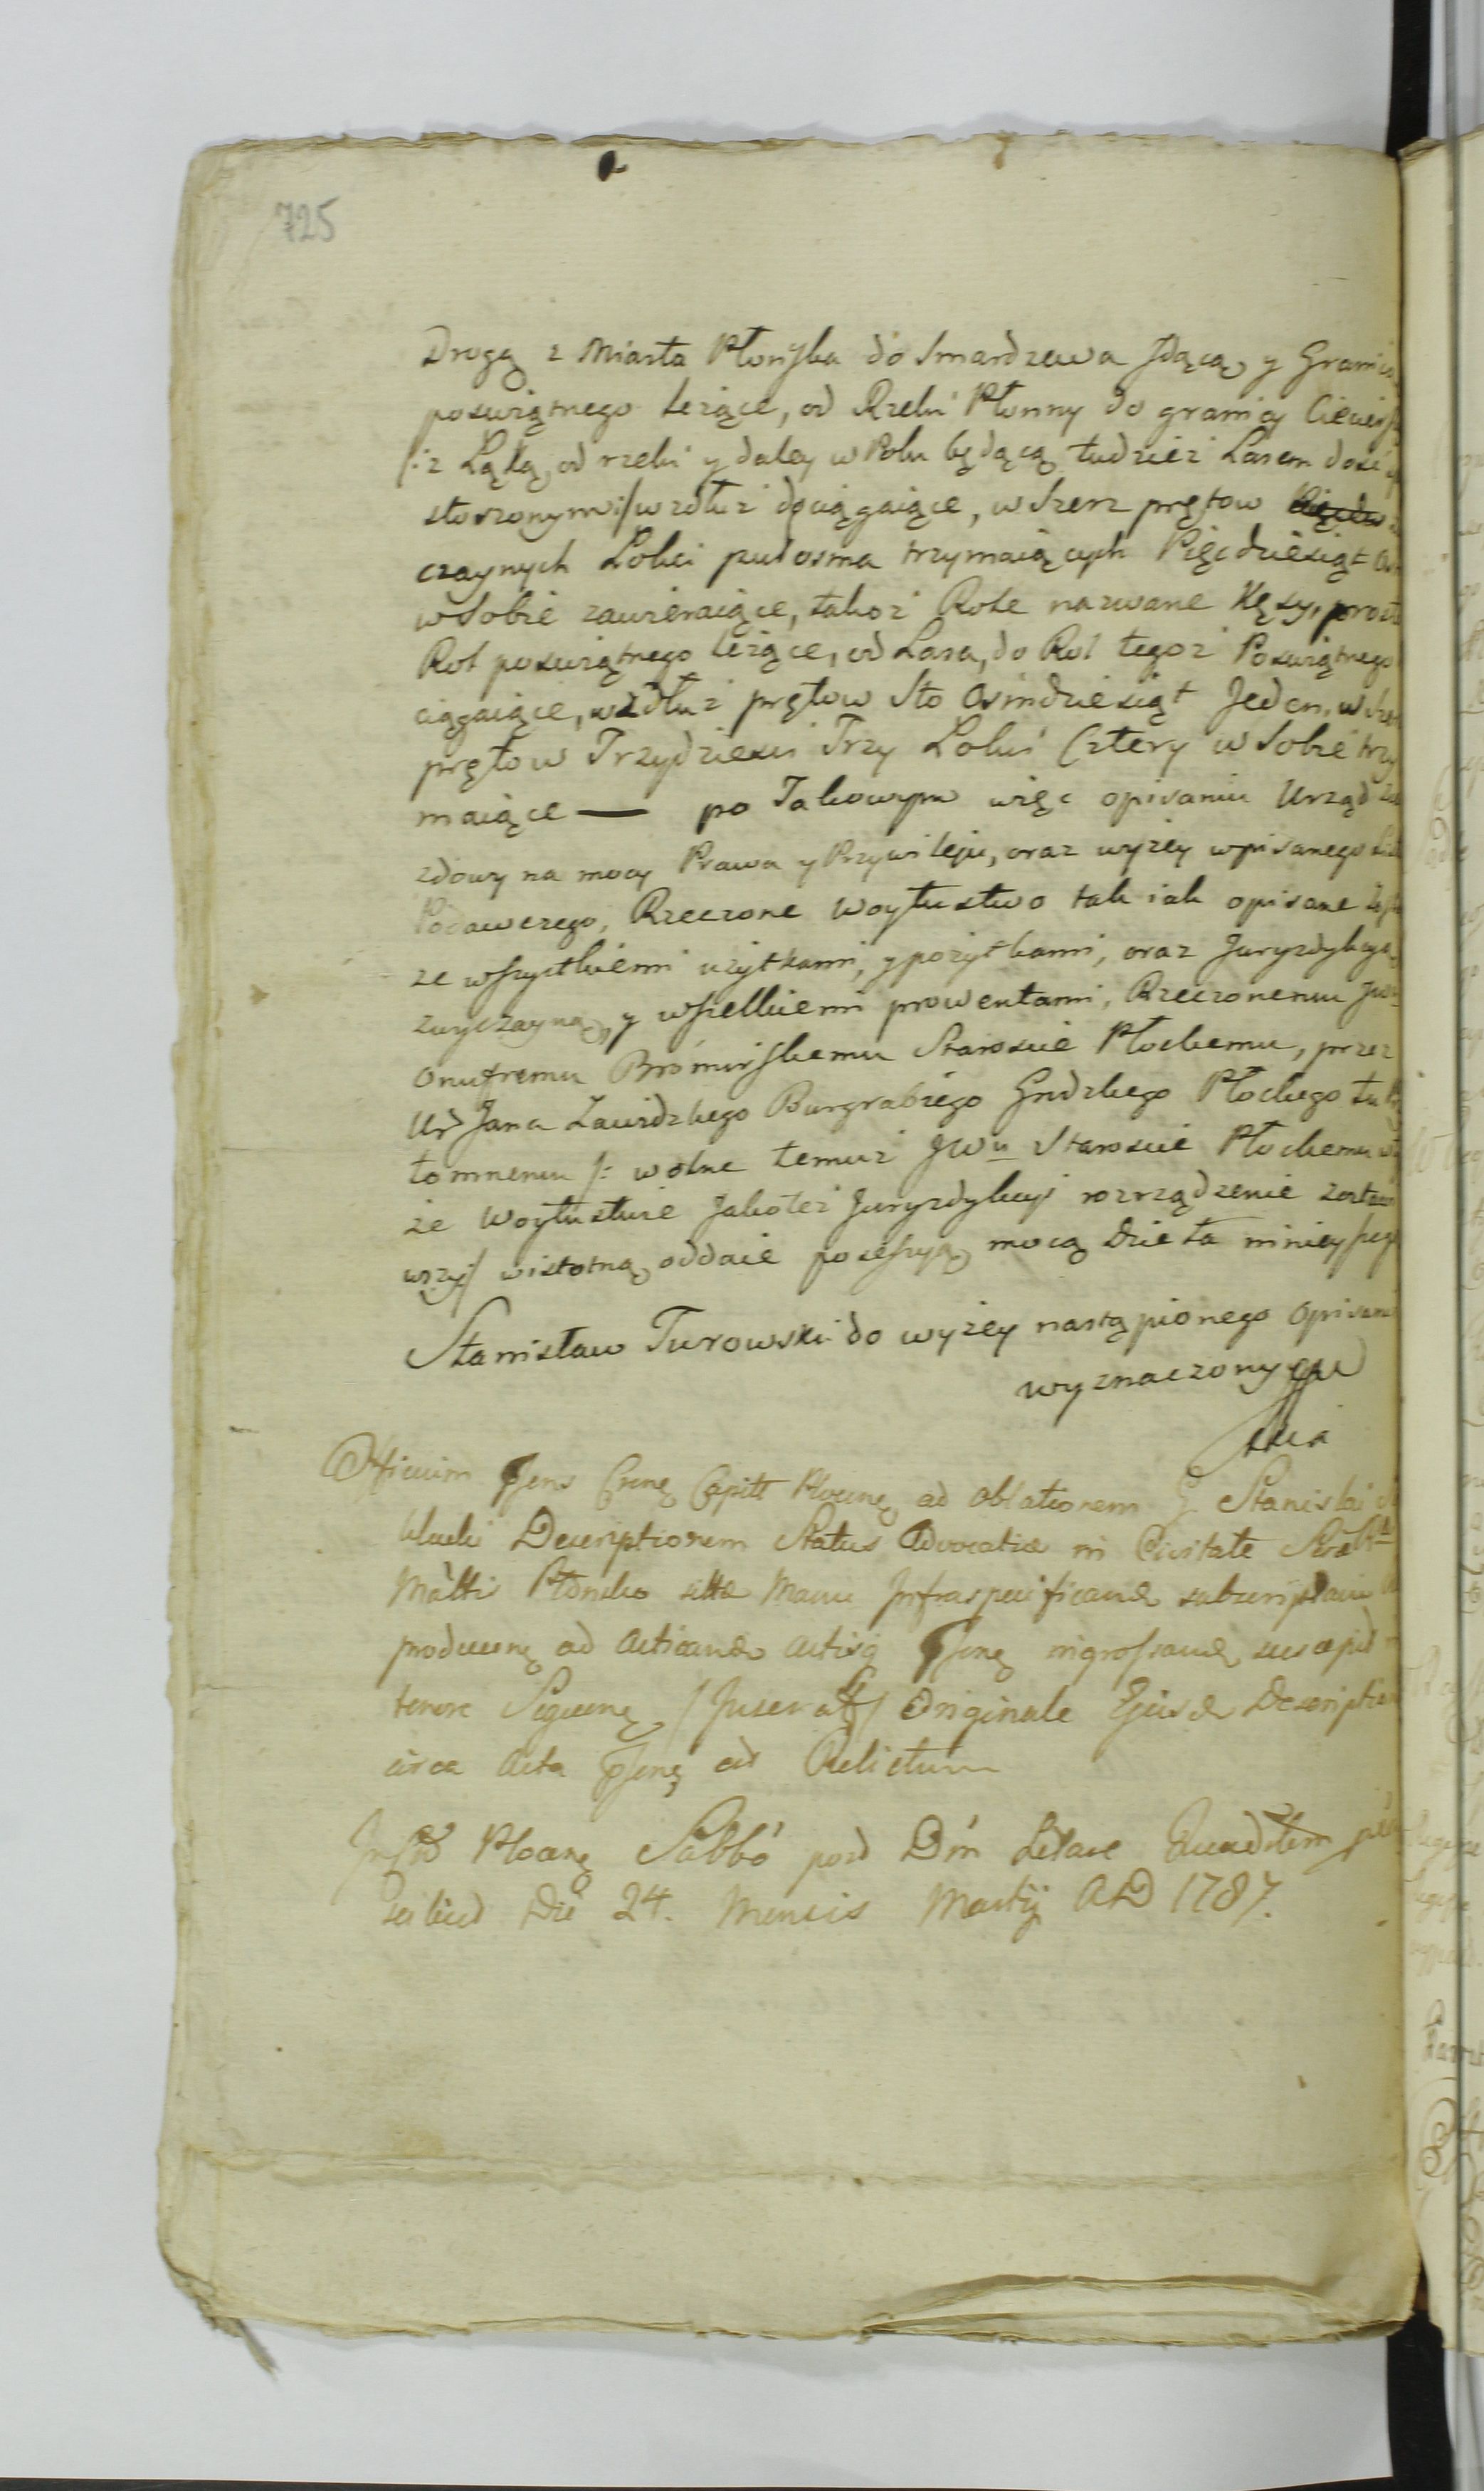 725
Drogą z Miasta Płońska do Smardzewa Jdącą y Granicą
poswiątnego Leżące, od Rzeki Płonny do granicy
/:z Łąką, od rzeki y daley w Polu będącą tudzież Lasem
słoszonym:/ wzdłuż dociągaiące, w Szerz prętow
czaynych Łokci pułosma trzymaiących Pięcdziesiąt
w Sobie zawieraiące, takoż Role nazwane Kęsy,
Rol poswiątnego leżące, od Lasa, do Rol tegoż Poswiątnego
ciągaiące, wzdłuż prętow Sto Osmdziesiąt Jeden, w Szerz
prętow Trzydziesci Trzy Łokci Cztery w Sobie trzy
maiące — po Takowym więc opisaniu Urząd
zdowy na mocy Prawa y Przywileju, oraz wyżey wpisanego
Podawczego, Rzeczone Woytostwo tak iak opisane
ze wszystkiemi użytkami, y pożytkami, oraz Juryzdykcyą
zwyczayną, y wszelkiemi prowentami, Rzeczonemu
Onufremu Bromirskemu Staroscie Płockemu, przez
Ur Jana Zawidzkego Burgrabiego Grodzkego Płockego
tomnemu /: wolne temuż JWu Staroscie Płockemu
że Woytostwie Jakoteż Juryzdykcyi rozrządzenie
wszy:/ wistotną, oddaie possessyą, mocą Dzieła ninieyszego
Stanisław Turowski do wyżey nastąpionego Opisania
wyznaczony
Officium Capitt Plocen ad Oblationem G Stanislai
Descriptionem Status Advocatiæ in Civitate
Płonsko sittæ Manu Infraspecificand
producen ad Acticand ingrossand suscepit
tenore Sequen / Inserat / Originale Ejusd Description
circa Acta Relictum
Plocen Sabbo post Dm Lætare
Die 24. Mensis Martij AD 1787.